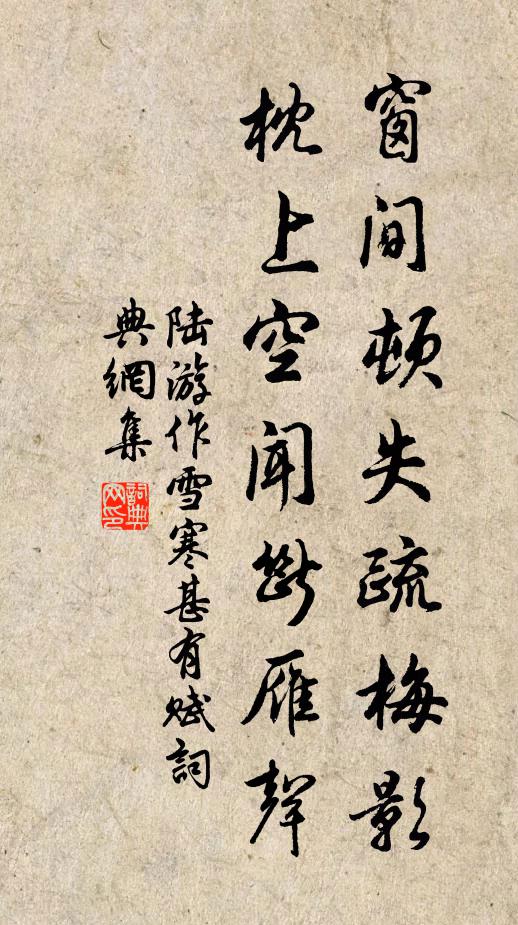 窗间顿失疏梅影
枕上空闻断雁声
陆游作雪寒甚有赋詞
典網集
詞典
网印